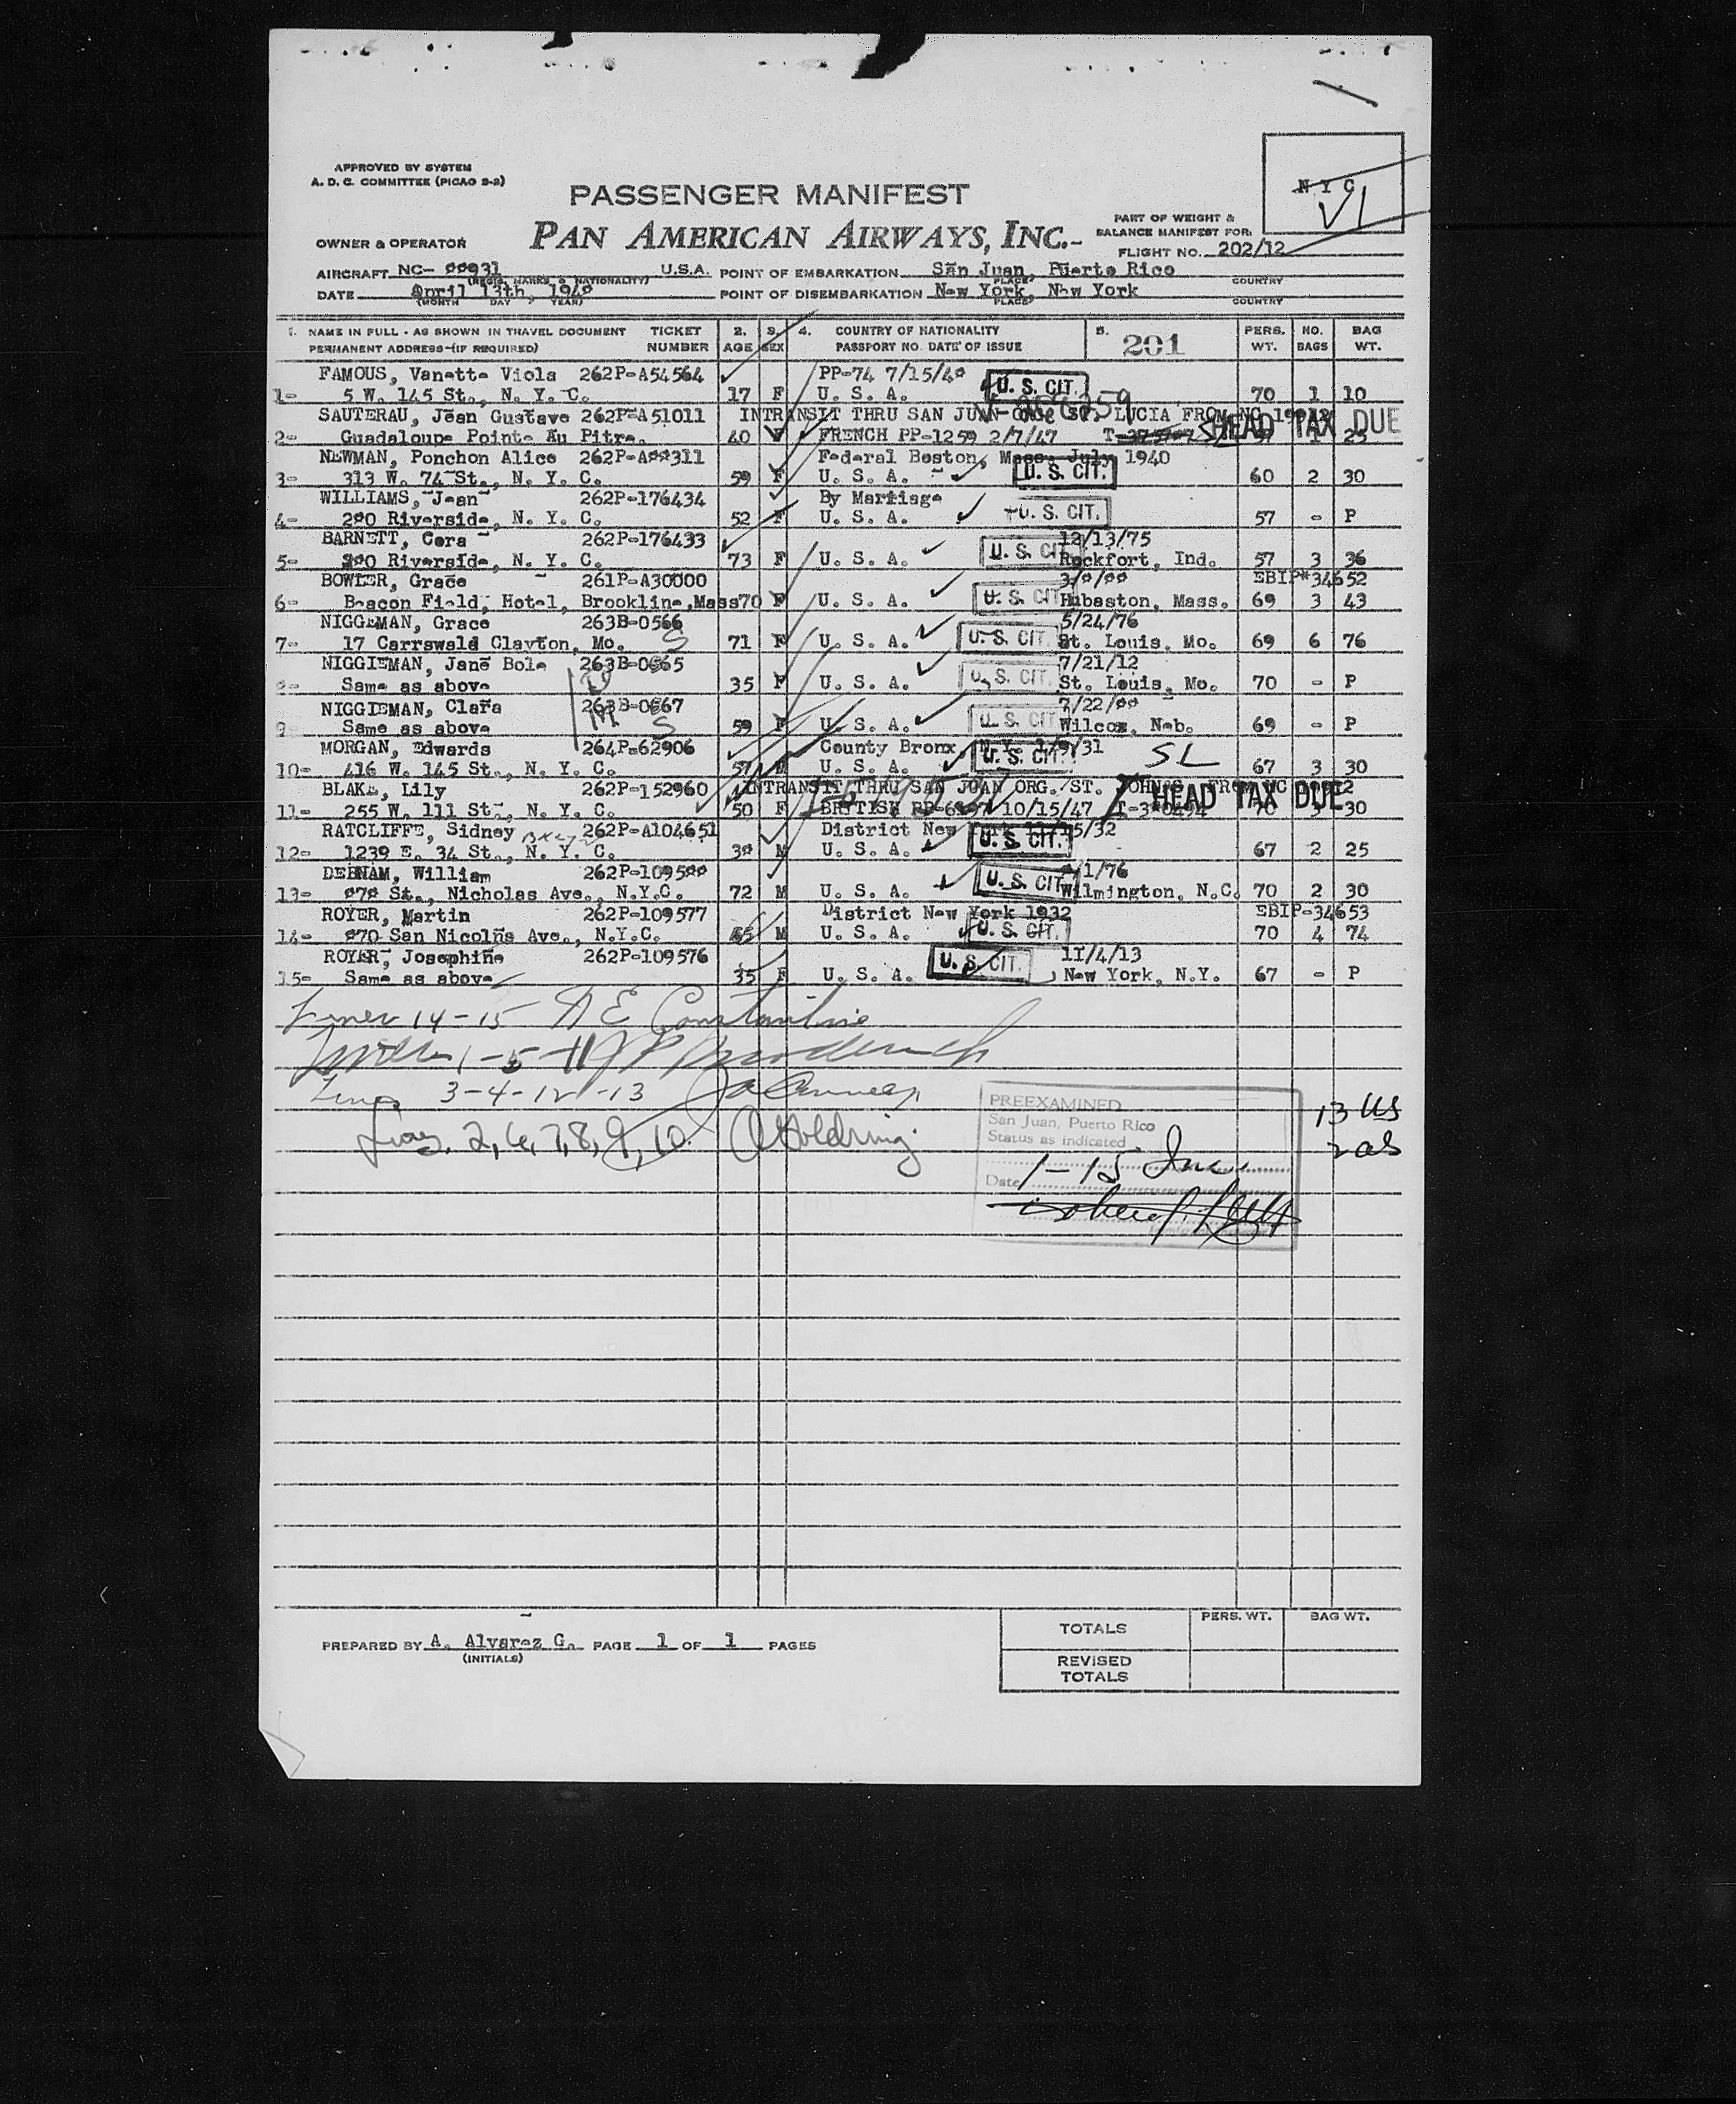 APPROVED BY SYSTEM
A. D. C. COMMITTEE (PICAO 2-2)
NYC
VI
PASSENGER MANIFEST
PAN AMERICAN AIRWAYS, INC.
PART OF WEIGHT &
BALANCE MANIFEST FOR:
OWNER & OPERATOR
FLIGHT NO. 202/12
AIRCRAFT NC- 88931 U.S.A. POINT OF EMBARKATION San Juan, Puerto Rico
(REGIS. MARKS & NATIONALITY) PLACE COUNTRY
DATE April 13th, 1948 POINT OF DISEMBARKATION New York, New York
(MONTH DAY YEAR) PLACE COUNTRY
1. NAME IN FULL - AS SHOWN IN TRAVEL DOCUMENT TICKET 2. 3. 4. COUNTRY OF NATIONALITY 5. 201 PERS. NO. BAG
PERMANENT ADDRESS-(IF REQUIRED) NUMBER AGE SEX PASSPORT NO. DATE OF ISSUE WT. BAGS WT.
FAMOUS, Vanette Viola 262P-A54564 PP-74 7/15/48 U. S. CIT.
1- 5 W. 145 St., N. Y. C. 17 F U. S. A. 70 1 10
SAUTERAU, Jean Gustave 262P-A51011 INTRANSIT THRU SAN JUAN ORG. ST. LUCIA FROM NC HEAD TAX DUE
2- Guadaloupe Pointe Au Pitre. 40 FRENCH PP-1259 2/7/47 1 25
NEWMAN, Ponchon Alice 262P-A88311 Federal Boston, Mass. July 1940
3- 313 W. 74 St., N. Y. C. 59 F U. S. A. U. S. CIT. 60 2 30
WILLIAMS, Jean 262P-176434 By Marriage
4- 280 Riverside, N. Y. C. 52 F U. S. A. U. S. CIT. 57 - P
BARNETT, Cora 262P-176433 12/13/75
5- 280 Riverside, N. Y. C. 73 F U. S. A. U. S. CIT Rockfort, Ind. 57 3 36
BOWLER, Grace 261P-A30000 3/8/88 EBIP*34652
6- Beacon Field, Hotel, Brookline,Mass70 F U. S. A. U. S. CIT Hubaston, Mass. 69 3 43
NIGGEMAN, Grace 263B-0566 5/24/76
7- 17 Carrswald Clayton, Mo. S 71 F U. S. A. U. S. CIT. St. Louis, Mo. 69 6 76
NIGGIEMAN, Jane Bole 263B-0665 7/21/12
8- Same as above 35 F U. S. A. U. S. CIT. St. Louis, Mo. 70 - P
NIGGIEMAN, Clara 263B-0667 7/22/88
9- Same as above S 59 F U. S. A. U. S. CIT Wilcox, Neb. 69 - P
MORGAN, Edwards 264P-62906 County Bronx, N.Y. 1/9/31 SL
10- 416 W. 145 St., N. Y. C. 57 M U. S. A. U. S. CIT. 67 3 30
BLAKE, Lily 262P-152960 INTRANSIT THRU SAN JUAN ORG. ST. JOHNS FROM NC HEAD TAX DUE
11- 255 W. 111 St., N. Y. C. 50 F BRITISH 10/15/47 70 3 30
RATCLIFFE, Sidney 262P-A104651 District New York 11/15/32
12- 1239 E. 34 St., N. Y. C. 38 M U. S. A. U. S. CIT. 67 2 25
DEBNAM, William 262P-109588 1/76
13- 878 St., Nicholas Ave., N.Y.C. 72 M U. S. A. U. S. CIT Wilmington, N.C. 70 2 30
ROYER, Martin 262P-109577 District New York 1932 EBIP-34653
14- 870 San Nicolas Ave., N.Y.C. 45 M U. S. A. U. S. CIT. 70 4 74
ROYER, Josephine 262P-109576 11/4/13
15- Same as above 35 F U. S. A. U. S. CIT. New York, N.Y. 67 - P
14-15 Constantine
1-5-11
3-4-12-13
2, 6, 7, 8, 9, 10. Goldring
PREEXAMINED
San Juan, Puerto Rico
Status as indicated
1-15 Inc.
Date
13 US
2 als
PREPARED BY A. Alvarez G. PAGE 1 OF 1 PAGES
(INITIALS)
PERS. WT. BAG WT.
TOTALS
REVISED
TOTALS